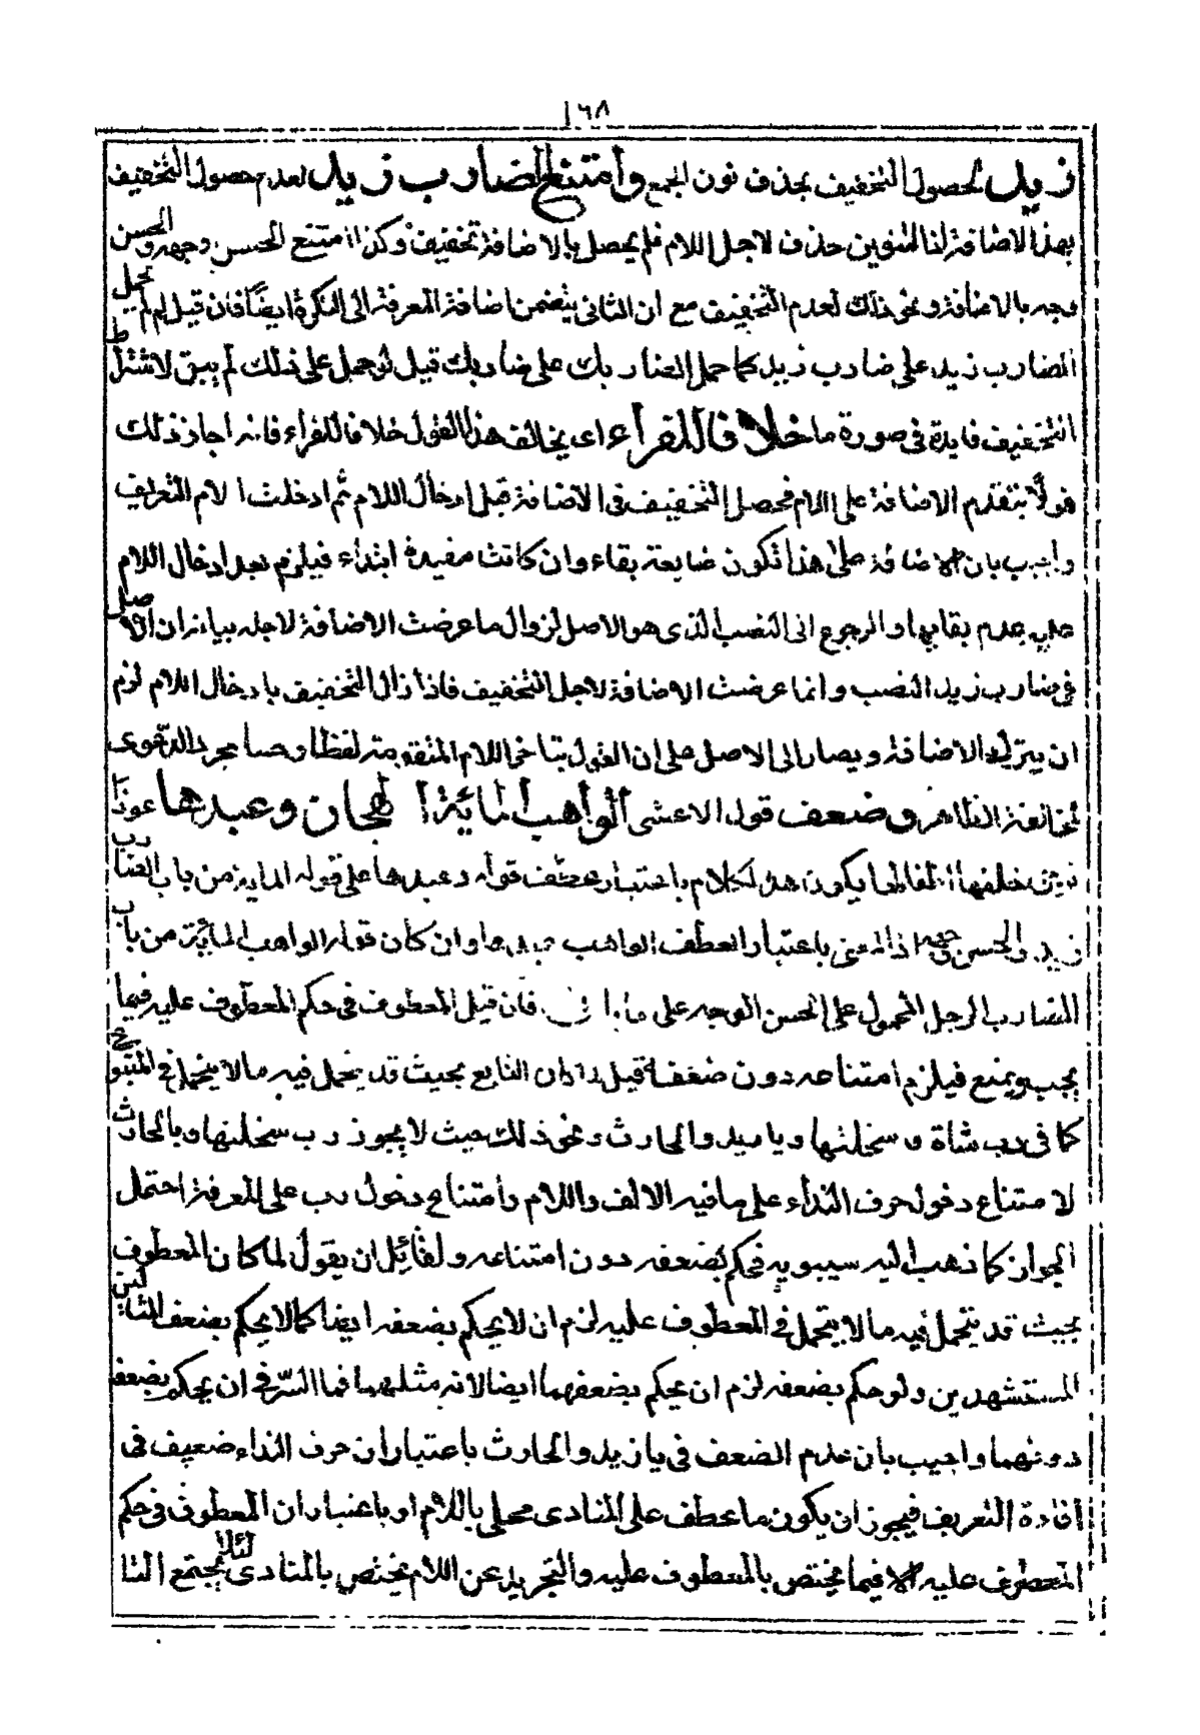 ١٦٨
زيد لحصول التخفيف بحذف نون الجمع وامتنع الضارب زيد لعدم حصول التخفيف
بهذا الاضافة لنا التنوين حذف لاجل اللام فلم يحصل بالاضافة تخفيف وكذا امتنع الحسن وجهه والحسن
وجه بالاضافة ونحو ذلك لعدم التخفيف مع ان الثانى يتضمن اضافة المعرفة الى النكرة ايضاً فان قيل لم لم يحمل
الضارب زيد على ضارب زيد كما حمل الضاربك على ضاربك قيل لو حمل على ذلك لم يبق لاشتراط
التخفيف فايدة فى صورة ما خلافا للفراء اى يخالف هذا القول خلافا للفراء فانه اجاز ذلك
قولاً بتقدم الاضافة على اللام فحصل التخفيف فى الاضافة قبل ادخال اللام ثم ادخلت الام التعريف
واجيب بان الاضافة على هذا تكون ضايعة بقاء وان كانت مفيدة ابتداء فيلزم بعد ادخال اللام
عليه عدم بقايها والرجوع الى النصب الذى هو الاصل لزوال ما عرضت الاضافة لاجله بيانه ان الاصل
فى ضارب زيد النصب وانما عرضت الاضافة لاجل التخفيف فاذا زال التخفيف بادخال اللام لزم
ان يترك الاضافة ويصار الى الاصل على ان القول بتاخر اللام المتقدمة لفظا وحسا مجرد الدعوى
لمخالفة الظاهر وضعف قول الاعشى الواهب المائة الهجان وعبدها عوذا
خلفها اطفالها يكون هذا الكلام باعتبار عطف قوله وعبدها على قوله المائة من باب الضارب
زيد والحسن وجه اذ المعنى باعتبار العطف الواهب عبدها وان كان قوله الواهب المائة من باب
الضارب الرجل المحمول على الحسن الوجه على فان قيل المعطوف فى حكم المعطوف عليه فيما
يجب ويمتنع فيلزم امتناعه دون ضعفه قيل ان التابع بحيث قد يتحمل فيه مالا يتحمل فى المتبوع
كما فى رب شاة وسخلتها ويا زيد والحارث ونحو ذلك حيث لا يجوز رب سخلتها ويا الحارث
لامتناع دخول حرف النداء على ما فيه الالف واللام وامتناع دخول رب على المعرفة احتمل
الجواز كما ذهب اليه سيبويه فحكم بضعفه دون امتناعه ولقائل ان يقول لما كان المعطوف
بحيث قد يتحمل فيه مالا يتحمل فى المعطوف عليه لزم ان لا يحكم بضعفه ايضا كما لا يحكم بضعف المثالين
المستشهدين ولو حكم بضعفه لزم ان يحكم بضعفهما ايضا لانه مثلهما فما السّر فى ان يحكم بضعفه
دونهما واجيب بان عدم الضعف فى يا زيد والحارث باعتبار ان حرف النداء ضعيف فى
افادة التعريف فيجوز ان يكون ما عطف على المنادى محلى باللام او باعتبار ان المعطوف فى حكم
المعطوف عليه الا فيما يختص بالمعطوف عليه والتجريد عن اللام مختص بالمنادى لئلا يجتمع التا